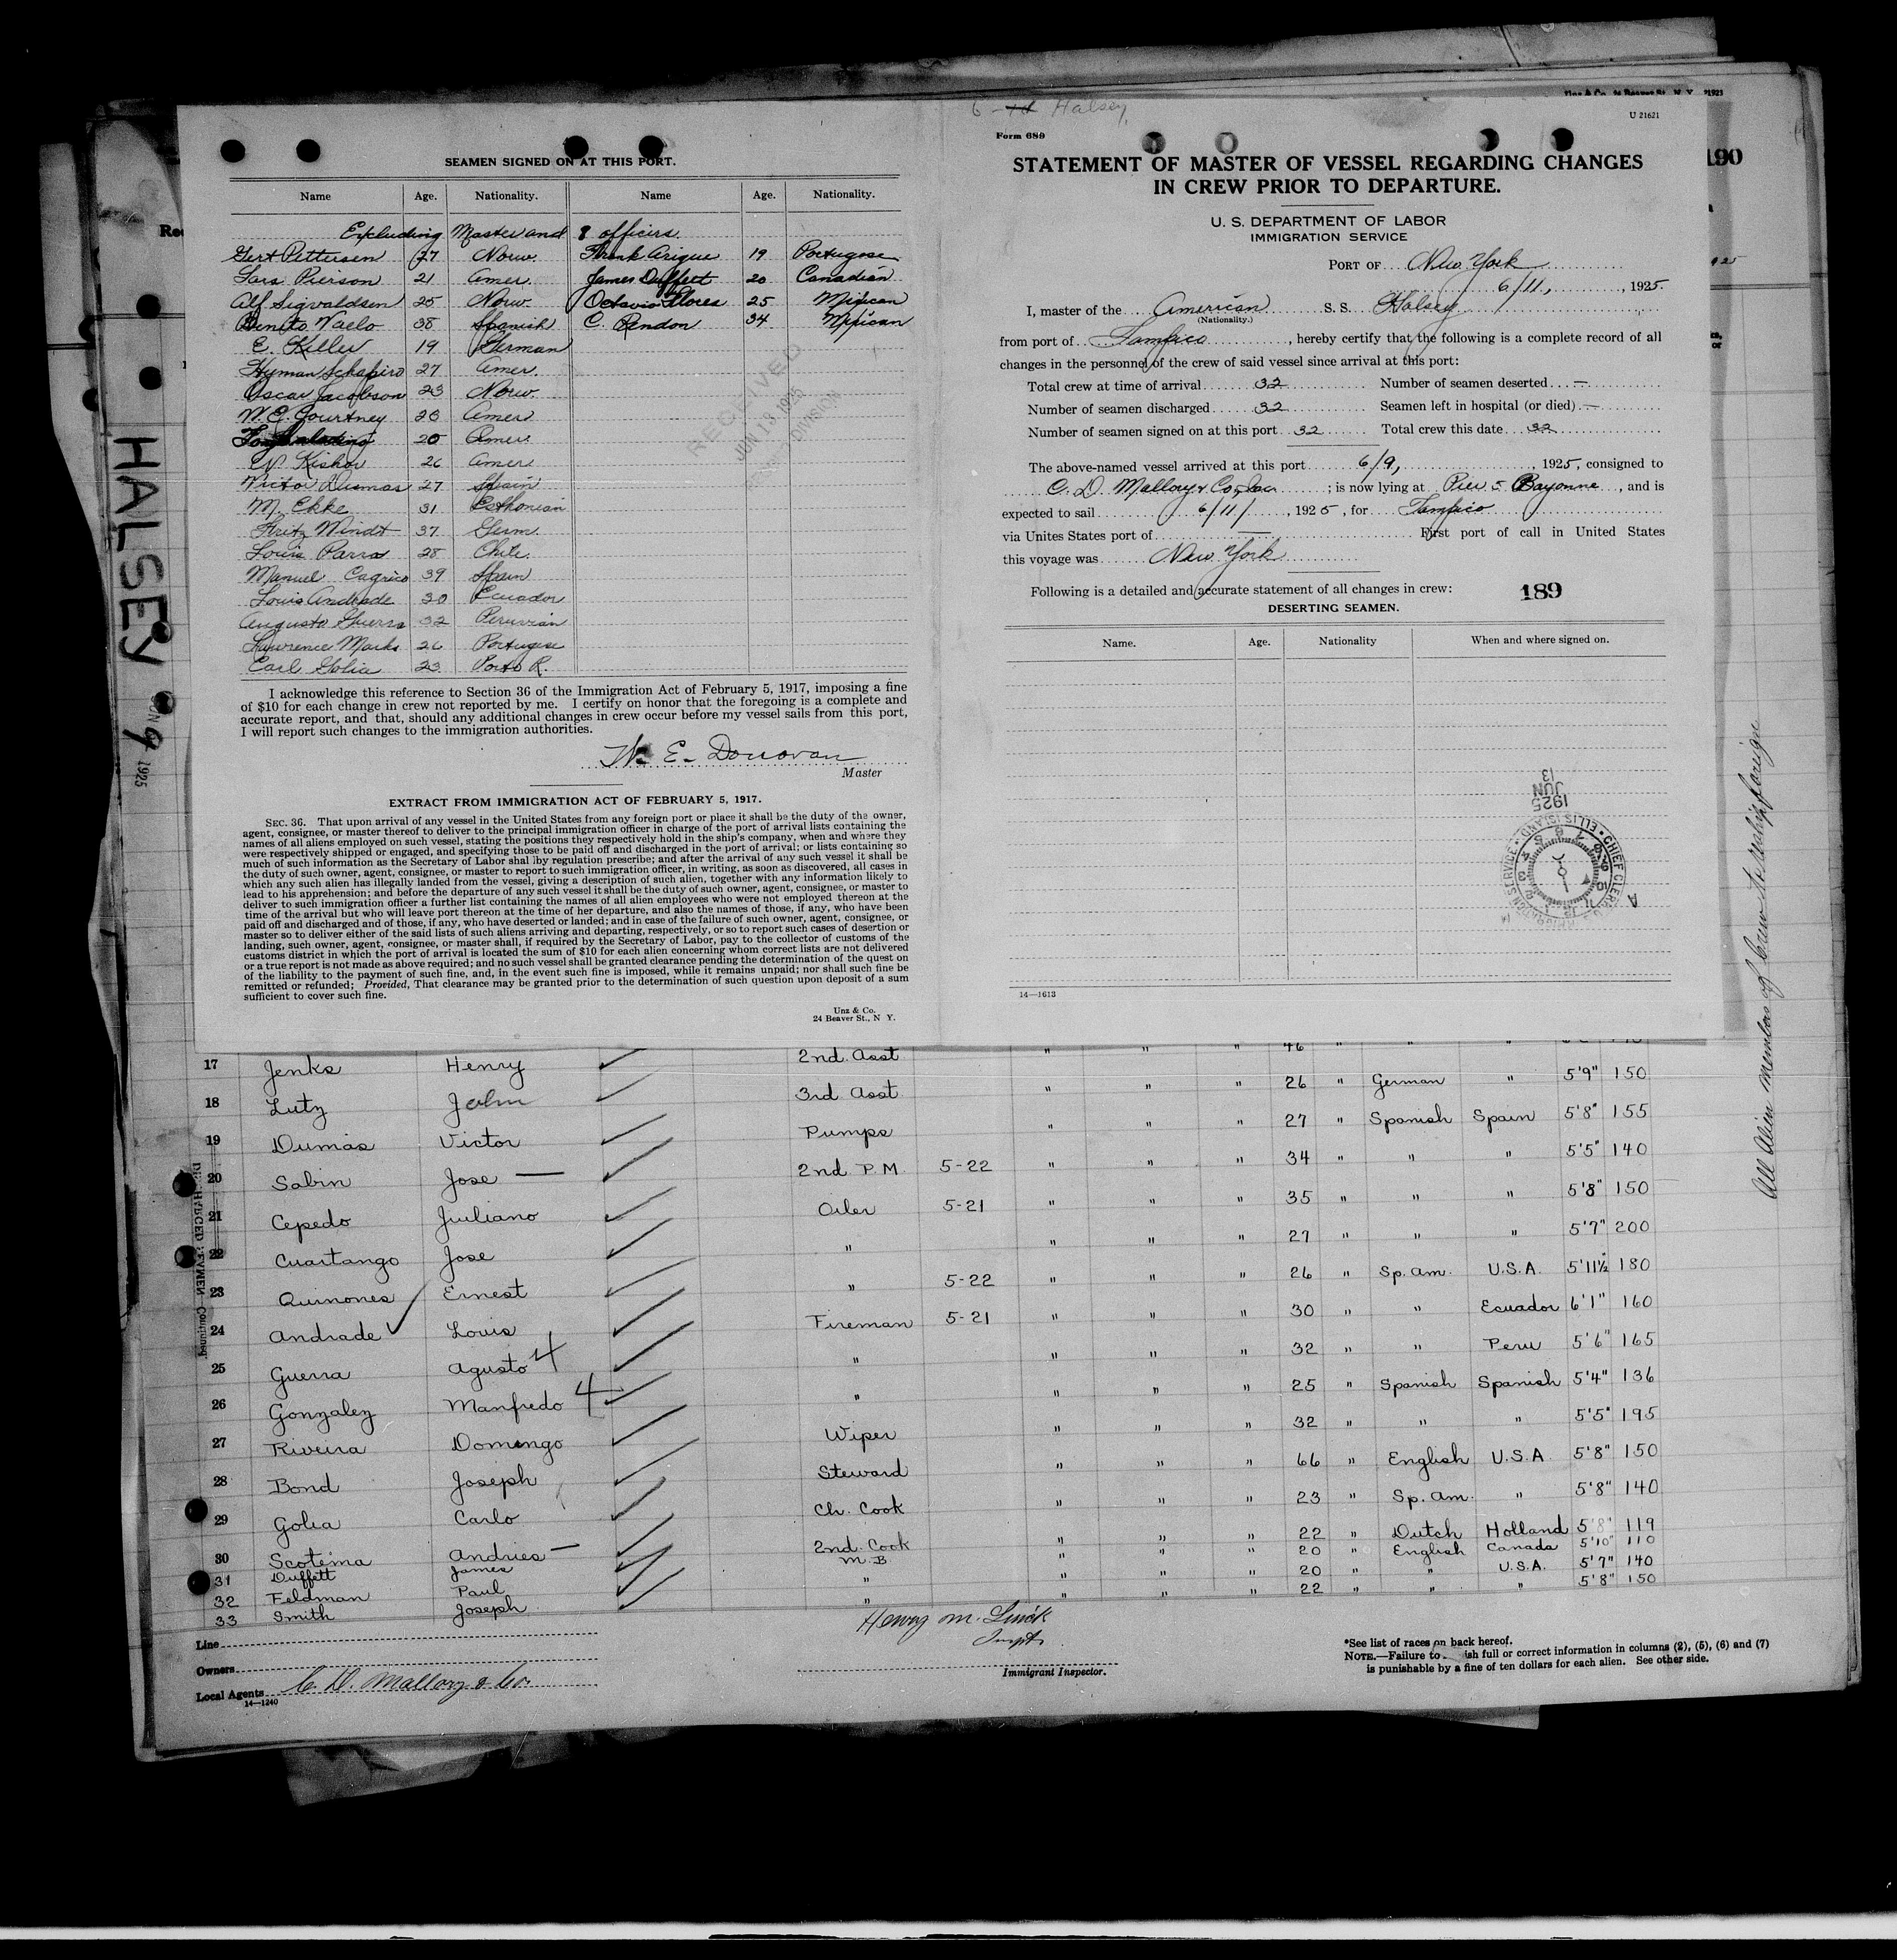 HALSEY
JUN 9 1925
SEAMEN SIGNED ON AT THIS PORT.
Name Age. Nationality. Name Age. Nationality.
Excluding Master and 8 officers.
Gert Pettersen 27 Norw. Frank Arique 19 Portugese
Lars Pierson 21 Amer. James Duffett 20 Canadian
Alf Sigvaldsen 25 Norw. Octavio Flores 25 Mexican
Benito Vaelo 38 Spanish C. Rendon 34 Mexican
E. Keller 19 German
Hyman Schapiro 27 Amer.
Oscar Jacobson 23 Norw.
W. E. Courtney 28 Amer
20 Amer.
Kishor 26 Amer
Victor Dumas 27 Spain
M. Ekke 31 Esthonian
Fritz Windt 37 Germ.
Louis Parra 28 Chile.
Manuel 39 Spain
Louis Andrade 30 Ecuador
Augusto Guerra 32 Peruvian
Lawrence Marks 26 Portugese
Carl Golia 23 Porto R.
RECEIVED
JUN 13 1925
DIVISION
I acknowledge this reference to Section 36 of the Immigration Act of February 5, 1917, imposing a fine
of $10 for each change in crew not reported by me. I certify on honor that the foregoing is a complete and
accurate report, and that, should any additional changes in crew occur before my vessel sails from this port,
I will report such changes to the immigration authorities.
W. E. Donovan
Master
EXTRACT FROM IMMIGRATION ACT OF FEBRUARY 5, 1917.
SEC. 36. That upon arrival of any vessel in the United States from any foreign port or place it shall be the duty of the owner,
agent, consignee, or master thereof to deliver to the principal immigration officer in charge of the port of arrival lists containing the
names of all aliens employed on such vessel, stating the positions they respectively hold in the ship's company, when and where they
were respectively shipped or engaged, and specifying those to be paid off and discharged in the port of arrival; or lists containing so
much of such information as the Secretary of Labor shal lby regulation prescribe; and after the arrival of any such vessel it shall be
the duty of such owner, agent, consignee, or master to report to such immigration officer, in writing, as soon as discovered, all cases in
which any such alien has illegally landed from the vessel, giving a description of such alien, together with any information likely to
lead to his apprehension; and before the departure of any such vessel it shall be the duty of such owner, agent, consignee, or master to
deliver to such immigration officer a further list containing the names of all alien employees who were not employed thereon at the
time of the arrival but who will leave port thereon at the time of her departure, and also the names of those, if any, who have been
paid off and discharged and of those, if any, who have deserted or landed; and in case of the failure of such owner, agent, consignee, or
master so to deliver either of the said lists of such aliens arriving and departing, respectively, or so to report such cases of desertion or
landing, such owner, agent, consignee, or master shall, if required by the Secretary of Labor, pay to the collector of customs of the
customs district in which the port of arrival is located the sum of $10 for each alien concerning whom correct lists are not delivered
or a true report is not made as above required; and no such vessel shall be granted clearance pending the determination of the quest on
of the liability to the payment of such fine, and, in the event such fine is imposed, while it remains unpaid; nor shall such fine be
remitted or refunded; Provided, That clearance may be granted prior to the determination of such question upon deposit of a sum
sufficient to cover such fine.
Unz & Co.
24 Beaver St., N Y.
Halsey
U 21621
Form 689
STATEMENT OF MASTER OF VESSEL REGARDING CHANGES
IN CREW PRIOR TO DEPARTURE.
U. S. DEPARTMENT OF LABOR
IMMIGRATION SERVICE
PORT OF New York
6/11, , 1925
I, master of the American S. S. Halsey
(Nationality.)
from port of Tampico , hereby certify that the following is a complete record of all
changes in the personnel of the crew of said vessel since arrival at this port:
Total crew at time of arrival 32 Number of seamen deserted —
Number of seamen discharged 32 Seamen left in hospital (or died) —
Number of seamen signed on at this port 32 Total crew this date 32
The above-named vessel arrived at this port 6/9, , 1925, consigned to
C. D. Mallory & Co, Inc ; is now lying at Pier 5 Bayonne , and is
expected to sail 6/11/ , 1925, for Tampico
via Unites States port of — First port of call in United States
this voyage was New York
Following is a detailed and accurate statement of all changes in crew: 189
DESERTING SEAMEN.
Name. Age. Nationality When and where signed on.
JUN 13 1925
CHIEF CLERK ELLIS ISLAND IMMIGRATION SERVICE
14—1613
190
All Alien members of crew to reship foreign
17 Jenks Henry 2nd. Asst " " " 46 "
18 Lutz John 3rd Asst " " " 26 " German " 5'9" 150
19 Dumas Victor Pumps " " " 27 " Spanish Spain 5'8" 155
20 Sabin Jose — 2nd P.M. 5-22 " " " 34 " " " 5'5" 140
21 Cepedo Juiliano Oiler 5-21 " " " 35 " " " 5'8" 150
22 Cuartango Jose " " " " 27 " " " 5'7" 200
23 Quinones Ernest " 5-22 " " " 26 " Sp. am. U.S.A. 5'11½" 180
24 Andrade Louis Fireman 5-21 " " " 30 " " Ecuador 6'1" 160
25 Guerra Agusto 4 " " " " 32 " " Peru 5'6" 165
26 Gonzalez Manfredo 4 " " " " 25 " Spanish Spanish 5'4" 136
27 Riveira Domingo Wiper " " " 32 " " " 5'5" 195
28 Bond Joseph Steward " " " 66 " English U.S.A. 5'8" 150
29 Golia Carlo Ch. Cook " " " 23 " Sp. am. " 5'8" 140
30 Scotema Andries — 2nd. Cook " " " 22 " Dutch Holland 5'8" 119
31 Duffett James M.B " " " 20 " English Canada 5'10" 110
32 Feldman Paul " " " " 20 " " U.S.A. 5'7" 140
33 Smith Joseph " " " " 22 " " " 5'8" 150
Line
Owners
Local Agents C. D. Mallory & Co.
14—1240
Immigrant Inspector.
*See list of races on back hereof.
NOTE.—Failure to ish full or correct information in columns (2), (5), (6) and (7)
is punishable by a fine of ten dollars for each alien. See other side.